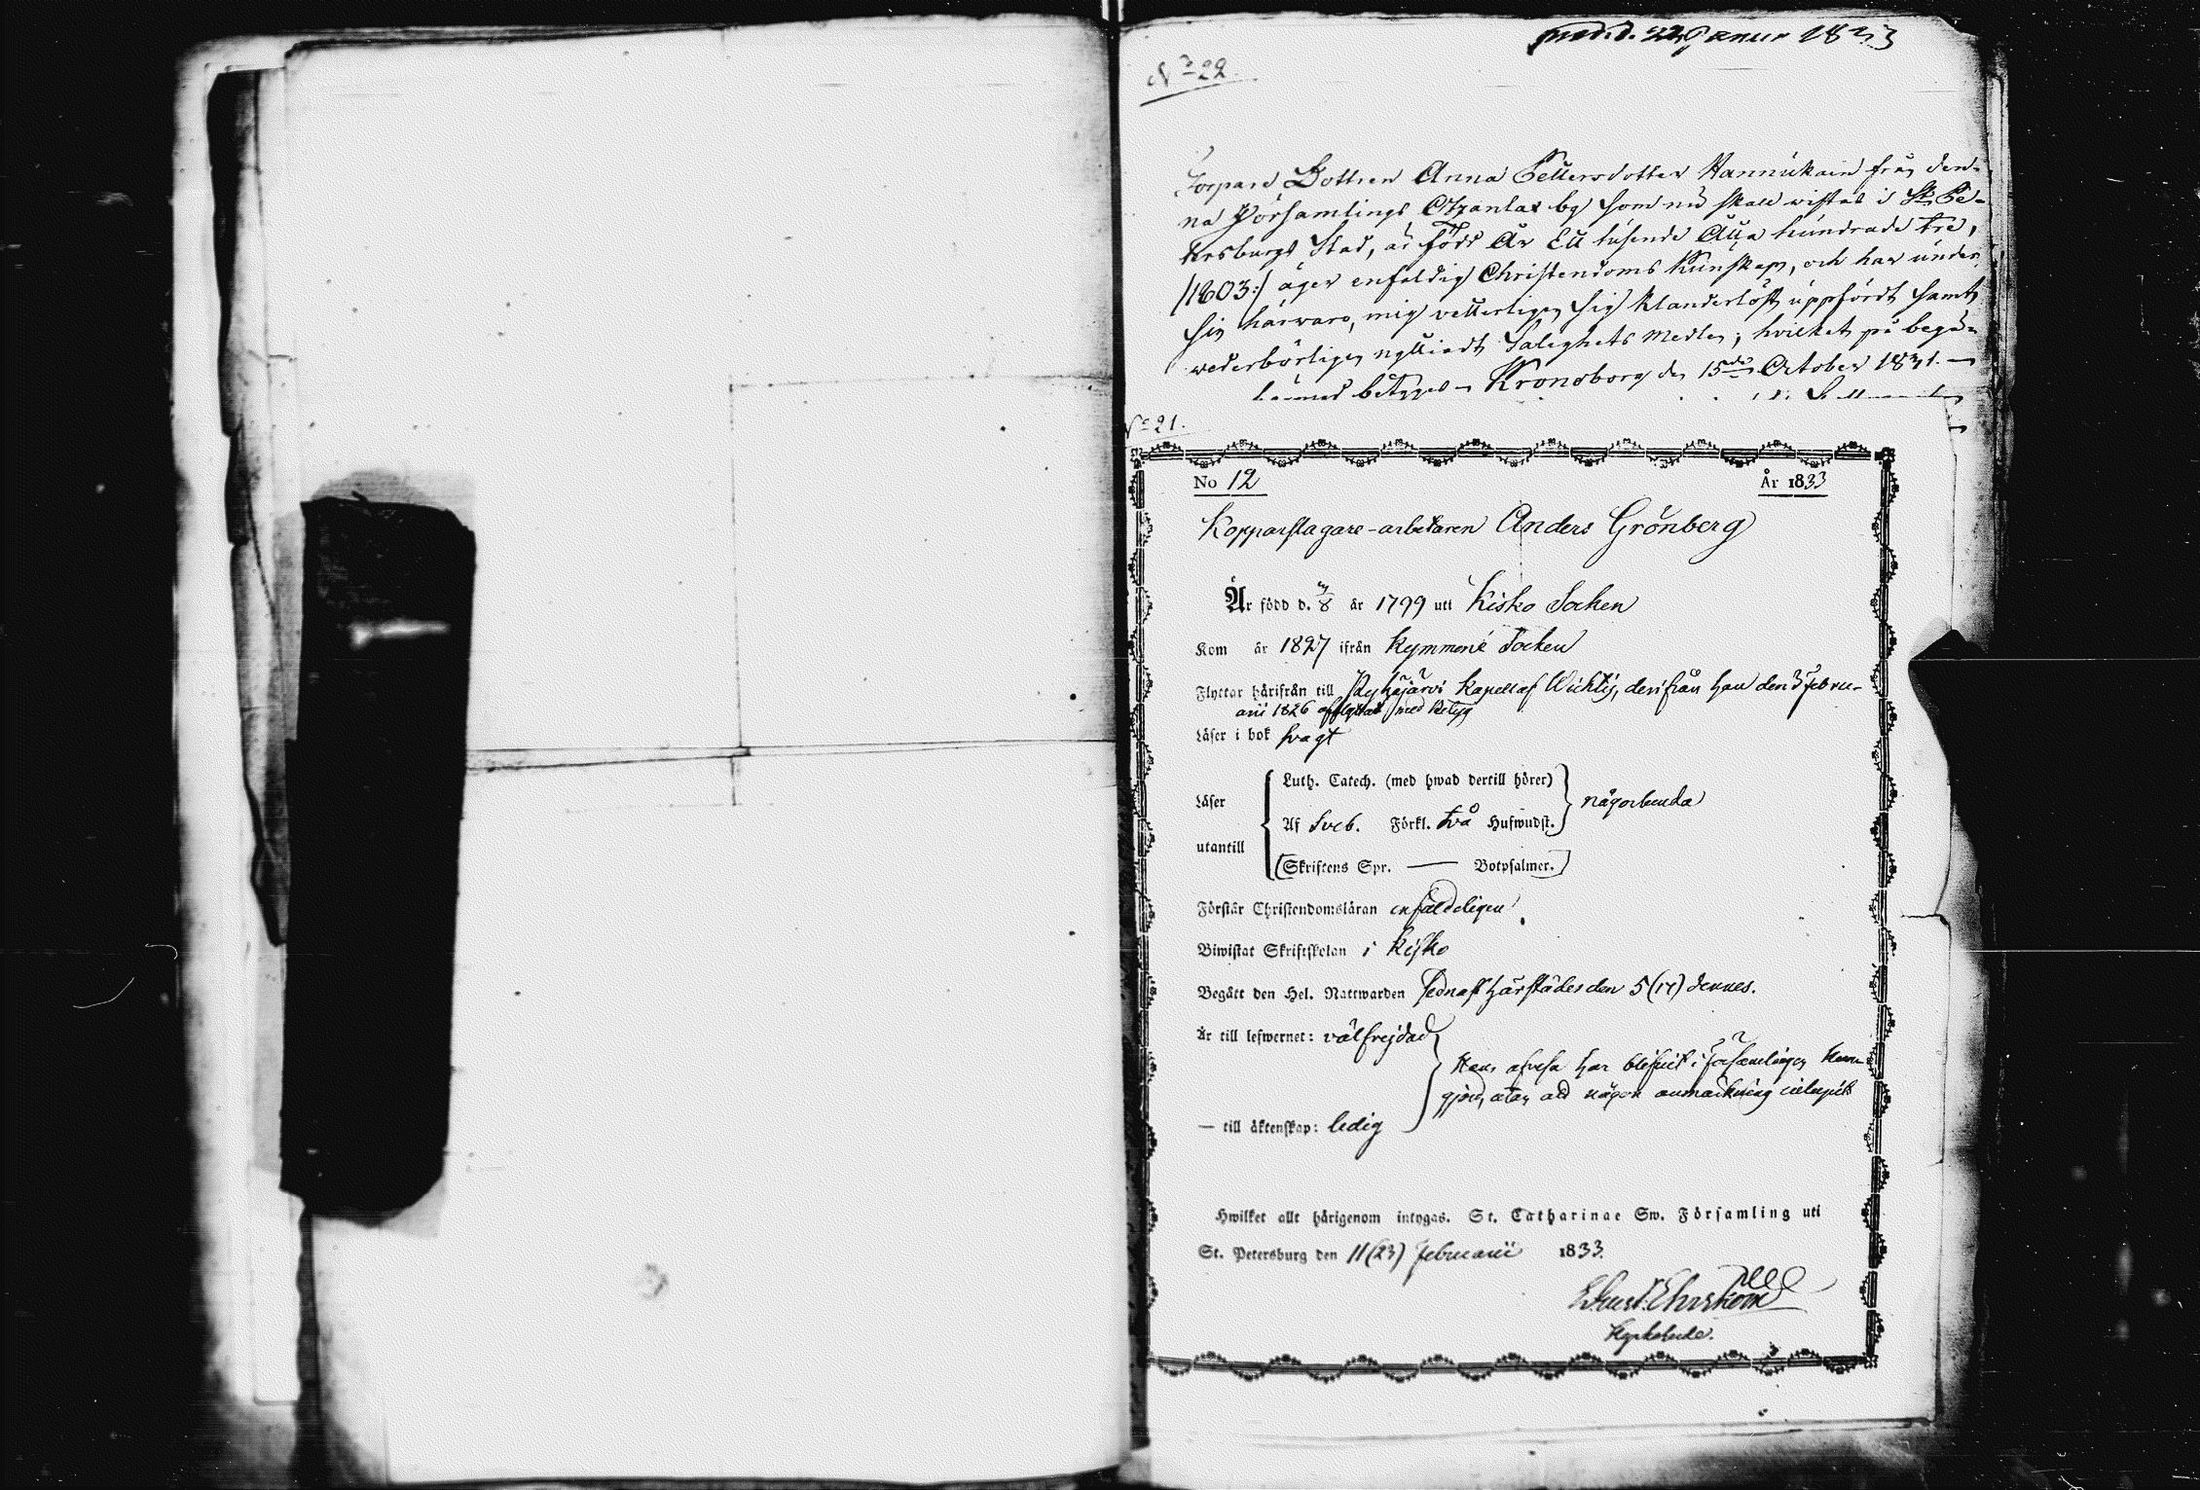 prod. d. 22 Januar 1833
No 22.
Torpare Dottren Anna Pettersdotter Hannukain från den-
na Församlings Otzanlax by som nu skall wistas i St Pe-
tersburgs Stad, är född År Ett tusende Åtta hundrade tre,
/:1803:/ äger enfaldig Christendoms Kunskap, och har under
sin härwaro, mig vetterligen sig klanderlöst uppfördt samt
wederbörligen nyttiadt Salighets Medlen; hvilket på begä-
härmed betygas Kronoborg den 15de October 1831.
No 21.
No 12 År 1833
Kopparslagare-arbetaren Anders Grönberg
Är född d. 3/8 år 1799 uti Kisko Socken
Kom år 1827 ifrån Kymmene Socken
Flyttar härifrån till Pyhäjärvi Kapell af Wichtis, derifrån han den 3 febru-
arii 1826 afflyttat med Betyg
Läser i bok svagt
Läser
utantill
Luth. Catech. (med hwad dertill hörer)
Af Sveb. Förkl. två Hufwudst.
(Skriftens Spr. — Botpsalmer.)
någorlunda
Förstår Christendomsläran enfaldeligen
Biwistat Skriftskolan i Kisko
Begått den Hel. Nattwarden sednast härstädes den 5 (17) dennes.
Är till lefwernet: välfrejdad
Hans afresa har blifvit i församlingen kun-
gjord, utan att någon anmärkning
— till äktenskap: ledig
Hwilket allt härigenom intygas. St. Catharinae Sw. Församling uti
St. Petersburg den 11 (23) Februarii 1833.
Gust. Ehrström
Kyrkoherde.